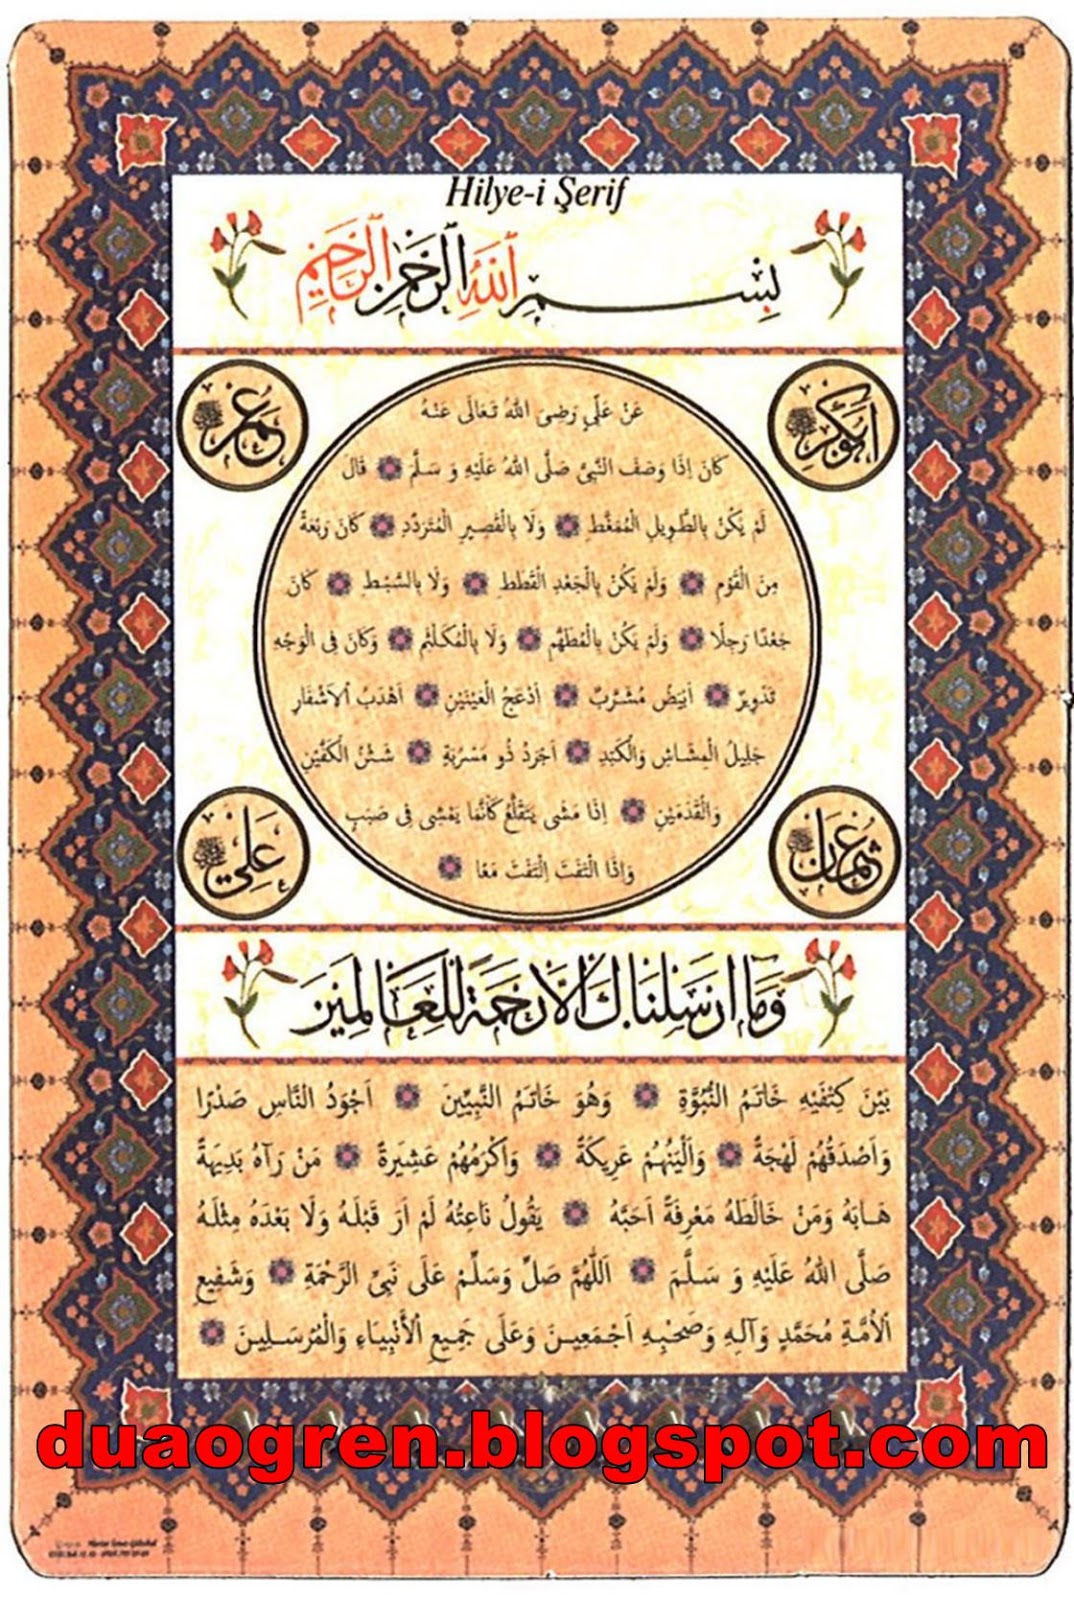 Hilye-i Şerif
بِسْمِ اللهِ الرَّحْمٰنِ الرَّحِيمِ
اَبُوبَكْرٍ
عُمَرُ
عَنْ عَلِيٍّ رَضِىَ اللهُ تَعَالَى عَنْهُ
كَانَ اِذَا وَصَفَ النَّبِىَّ صَلَّى اللهُ عَلَيْهِ وَ سَلَّمَ قَالَ
لَمْ يَكُنْ بِالطَّوِيلِ الْمُمَغَّطِ وَلَا بِالْقَصِيرِ الْمُتَرَدِّدِ كَانَ رَبْعَةً
مِنَ الْقَوْمِ وَلَمْ يَكُنْ بِالْجَعْدِ الْقَطَطِ وَلَا بِالسَّبْطِ كَانَ
جَعْدًا رَجِلًا وَلَمْ يَكُنْ بِالْمُطَهَّمِ وَلَا بِالْمُكَلْثَمِ وَكَانَ فِى الْوَجْهِ
تَدْوِيرٌ اَبْيَضُ مُشْرَبٌ اَدْعَجُ الْعَيْنَيْنِ اَهْدَبُ الْاَشْفَارِ
جَلِيلُ الْمِشَاشِ وَالْكَتَدِ اَجْرَدُ ذُو مَسْرُبَةٍ شَثْنُ الْكَفَّيْنِ
وَالْقَدَمَيْنِ اِذَا مَشَى يَتَقَلَّعُ كَاَنَّمَا يَمْشِى فِى صَبَبٍ
وَاِذَا الْتَفَتَ اِلْتَفَتَ مَعًا
عُثْمَانُ
عَلِيٌّ
وَمَا اَرْسَلْنَاكَ اِلَّا رَحْمَةً لِلْعَالَمِينَ
بَيْنَ كِتْفَيْهِ خَاتَمُ النُّبُوَّةِ وَهُوَ خَاتَمُ النَّبِيِّينَ اَجْوَدُ النَّاسِ صَدْرًا
وَاَصْدَقُهُمْ لَهْجَةً وَاَلْيَنُهُمْ عَرِيكَةً وَاَكْرَمُهُمْ عَشِيرَةً مَنْ رَآهُ بَدِيهَةً
هَابَهُ وَمَنْ خَالَطَهُ مَعْرِفَةً اَحَبَّهُ يَقُولُ نَاعِتُهُ لَمْ اَرَ قَبْلَهُ وَلَا بَعْدَهُ مِثْلَهُ
صَلَّى اللهُ عَلَيْهِ وَ سَلَّمَ اَللّٰهُمَّ صَلِّ وَسَلِّمْ عَلَى نَبِىِّ الرَّحْمَةِ وَشَفِيعِ
الْاُمَّةِ مُحَمَّدٍ وَآلِهِ وَصَحْبِهِ اَجْمَعِينَ وَعَلَى جَمِيعِ الْاَنْبِيَاءِ وَالْمُرْسَلِينَ
duaogren.blogspot.com